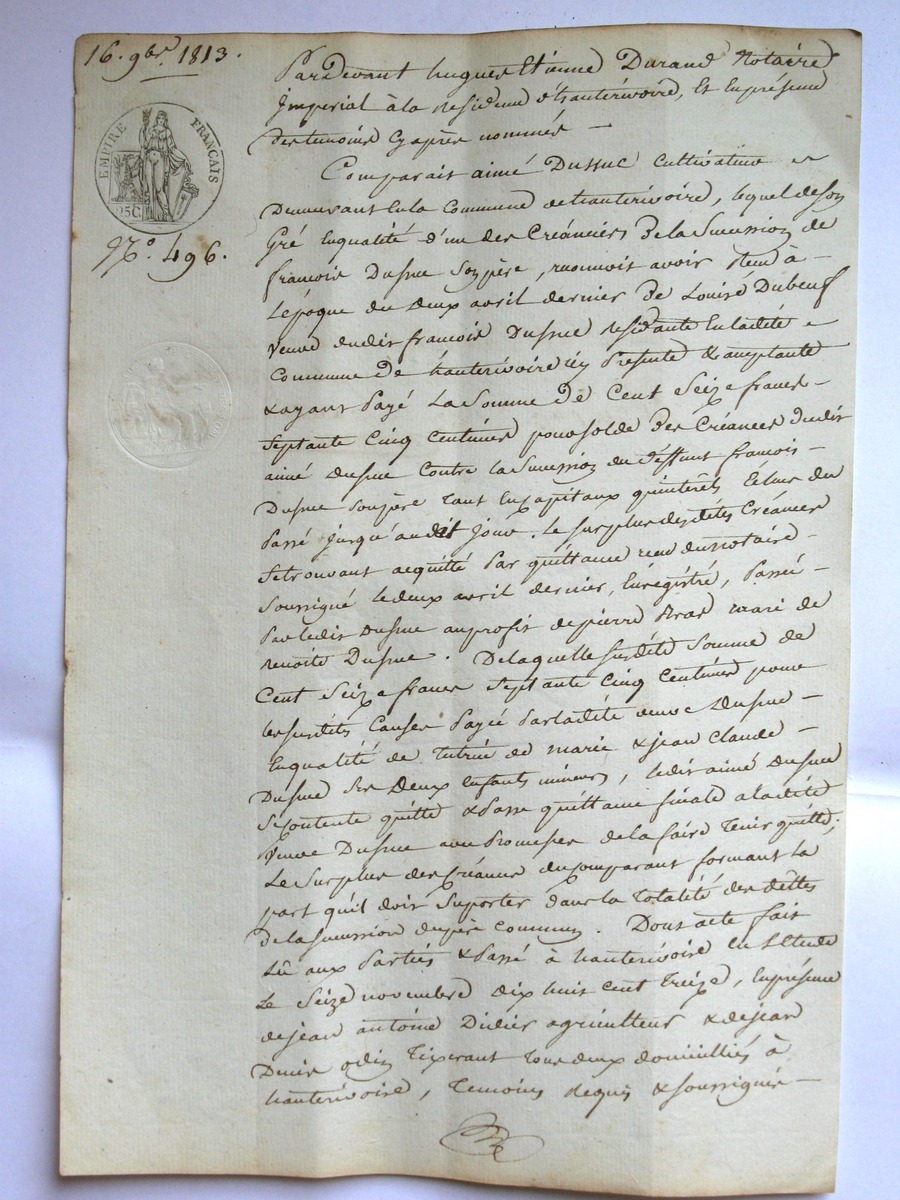 16. 9br. 1813.
EMPIRE FRANÇAIS
25C
No. 496.
Pardevant hugues Etienne Durand Notaire
Imperial à la residence d'hauterivoire, Et en présence
des temoins cy après nommés —
Comparait aimé Dussuc Cultivateur
Demeurant En la Commune de hauterivoire, lequel de son
Gré En qualité d'un des Créanciers De la Succession de
francois Dussuc son père, reconnoit avoir reçu à
L'époque du deux avril dernier De Louise Dubeuf
Veuve dudit francois Dussuc residante En ladite
Commune De hauterivoire icy Presente & acceptante
& ayant Payé La Somme De Cent Seize francs
Septante Cinq Centimes pour solde Des Créances dudit
aimé Dussuc Contre la Succession du deffunt francois
Dussuc son père tant En capitaux qu'interêts Echus du
Passé jusqu'audit jour. Le surplus desdites Créances
Se trouvant acquitté Par quittance reçue du notaire
Soussigné le deux avril dernier, Enregistré, Passée
Par ledit Dussuc au profit de pierre Bras mari de
Benoite Dussuc. De laquelle susdite Somme de
Cent Seize francs Septante Cinq Centimes pour
les susdits Causes Payée Par ladite veuve Dussuc
En qualité de Tutrice de marie & jean Claude
Dussuc Ses Deux Enfants mineurs, ledit aimé Dussuc
Se Contente quitte & Passe quittance finale a ladite
Veuve Dussuc avec Promesses de la faire Tenir quitte;
Le Surplus des Créances du comparant formant La
part qu'il doit Suporter dans la Totalité des dettes
De la succession du père Commun. Dont acte fait
Lû aux Parties & Passé à hauterivoire En l'Etude
Le Seize novembre dix huit cent treize, En présence
de jean antoine Didier agriculteur & de jean
Denis odin Tixerant Tous deux domiciliés à
hauterivoire, Temoins requis & soussignés —